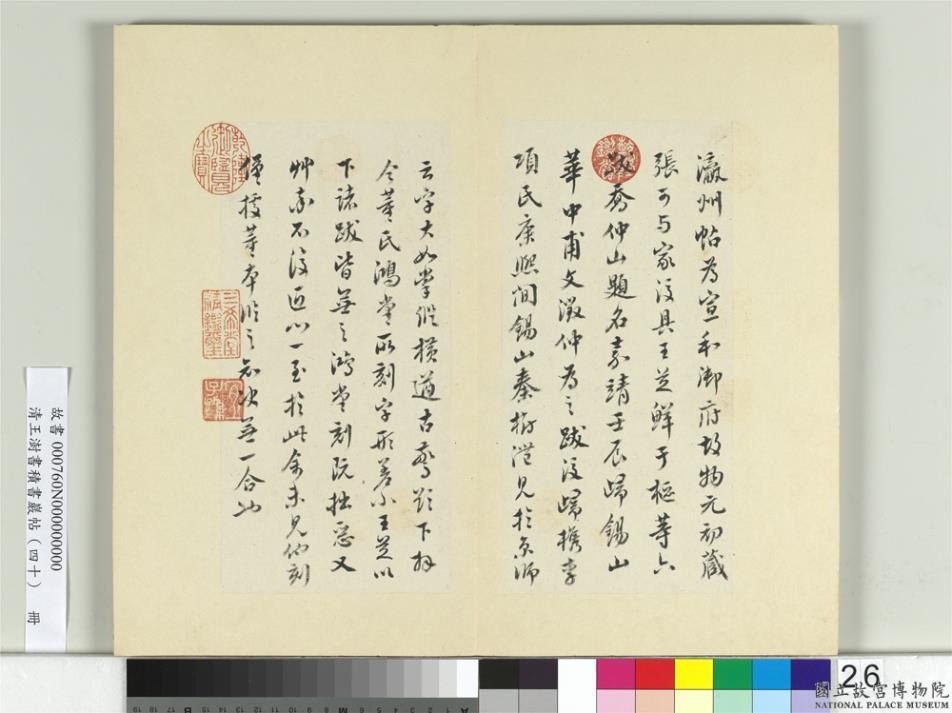 瀛州帖為宣和御府故物元初藏
張可与家後具王芝鮮于樞等六
跋喬仲山題名嘉靖壬辰歸錫山
華中甫文徵仲為之跋後歸檇李
項氏康熙间錫山秦拧澨見於京师
云字大如掌縱横道古奇跡下
今董氏鴻堂所刻字形差小王芝以
下諸跋皆無之鴻堂刻既拙惡又
草率不復近心一至於此余未見他刻
僅據董本臨之知決無一合也
乾隆御覽之寶
三希堂精鑑璽
宜子孫
乾隆鑑賞
故書 000760N000000000
清王澍書積書巖帖(四十) 冊
26
國立故宮博物院
NATIONAL PALACE MUSEUM